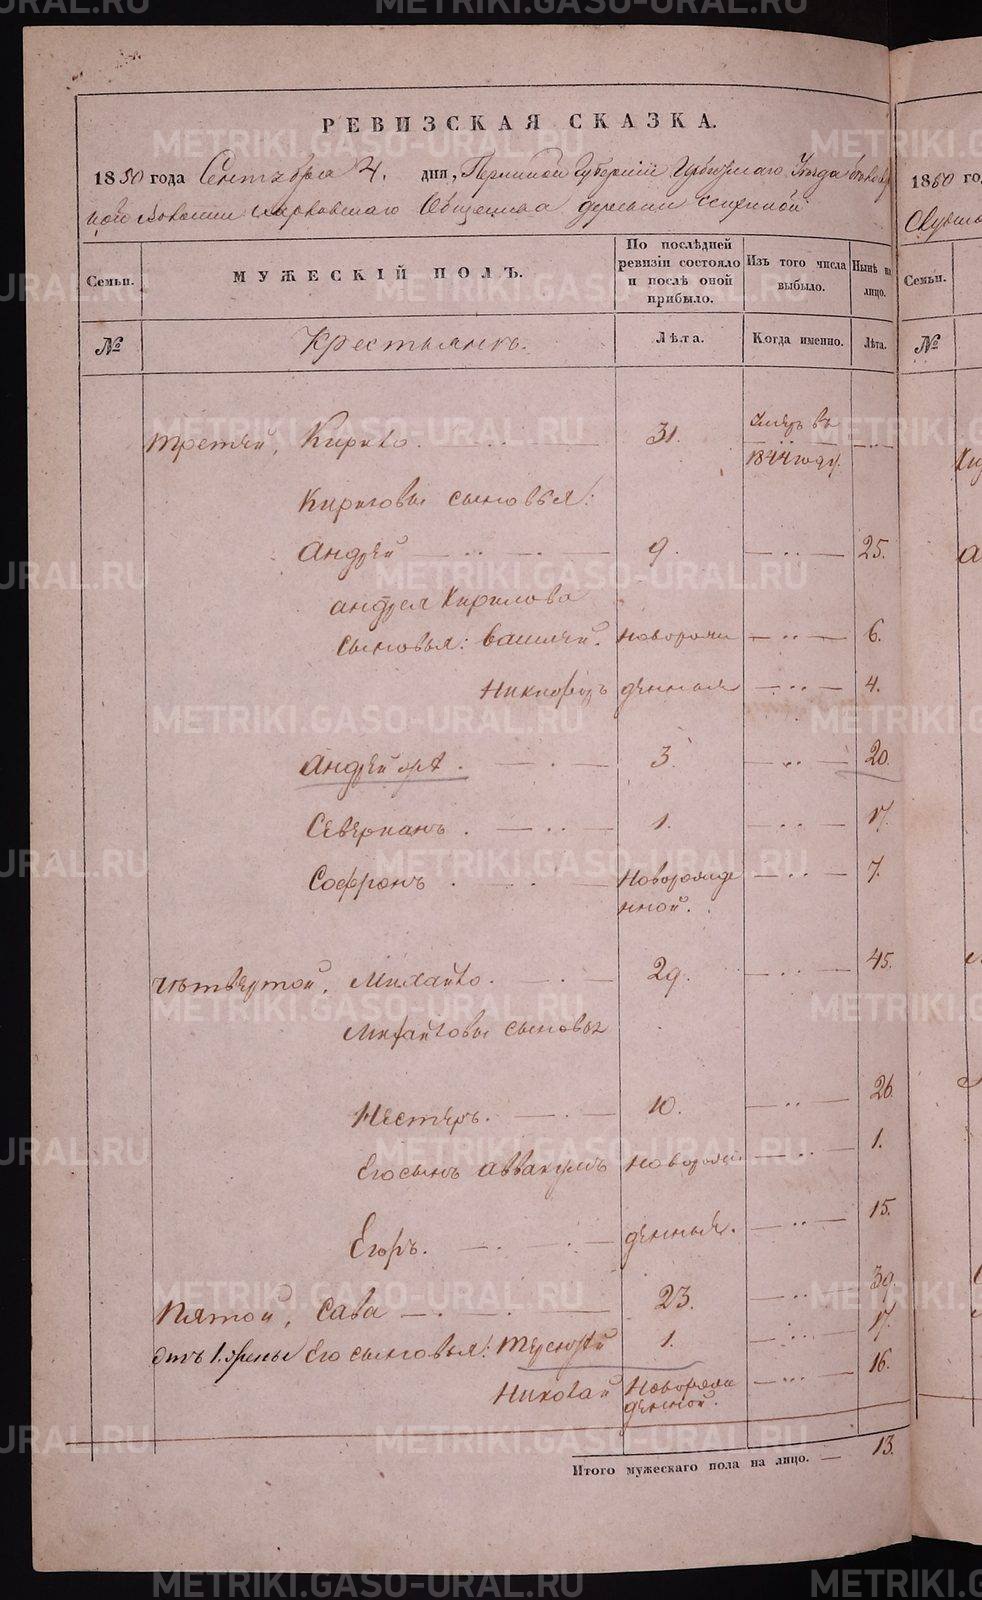 METRIKI.GASO-URAL.RU
РЕВИЗСКАЯ СКАЗКА.
1850 года Сентября 4. дня, Пермской Губернии Ирбитскаго Уезда
волости Общества деревни
Семьи. МУЖЕСКІЙ ПОЛЪ. По послѣдней ревизіи состояло и послѣ оной прибыло. Изъ того числа выбыло. Нынѣ на лицо.
№ Крестьянъ. Лѣта. Когда именно. Лѣта.
третей, Кирило. 31. умеръ въ 1844 году.
Кириловы сыновья:
Андрей 9. 25.
Андрея Кирилова
сыновья: Василей. новорож 6.
Никифоръ денные 4.
Андрей 3. 20.
Северианъ. 1. 17.
Софронъ. Новорожде нной. 7.
четвертой. Михайло. 29. 45.
Михайловы сыновья
Нестеръ. 10. 26.
Его сынъ аввакумъ новорож 1.
Егоръ. денные. 15.
Пятой, Сава 23. 39.
отъ 1. жены Его сыновья: Терентей 1. 17.
Николай Новорож денной. 16.
Итого мужескаго пола на лицо. — 13.
1850 го
Семьи.
№